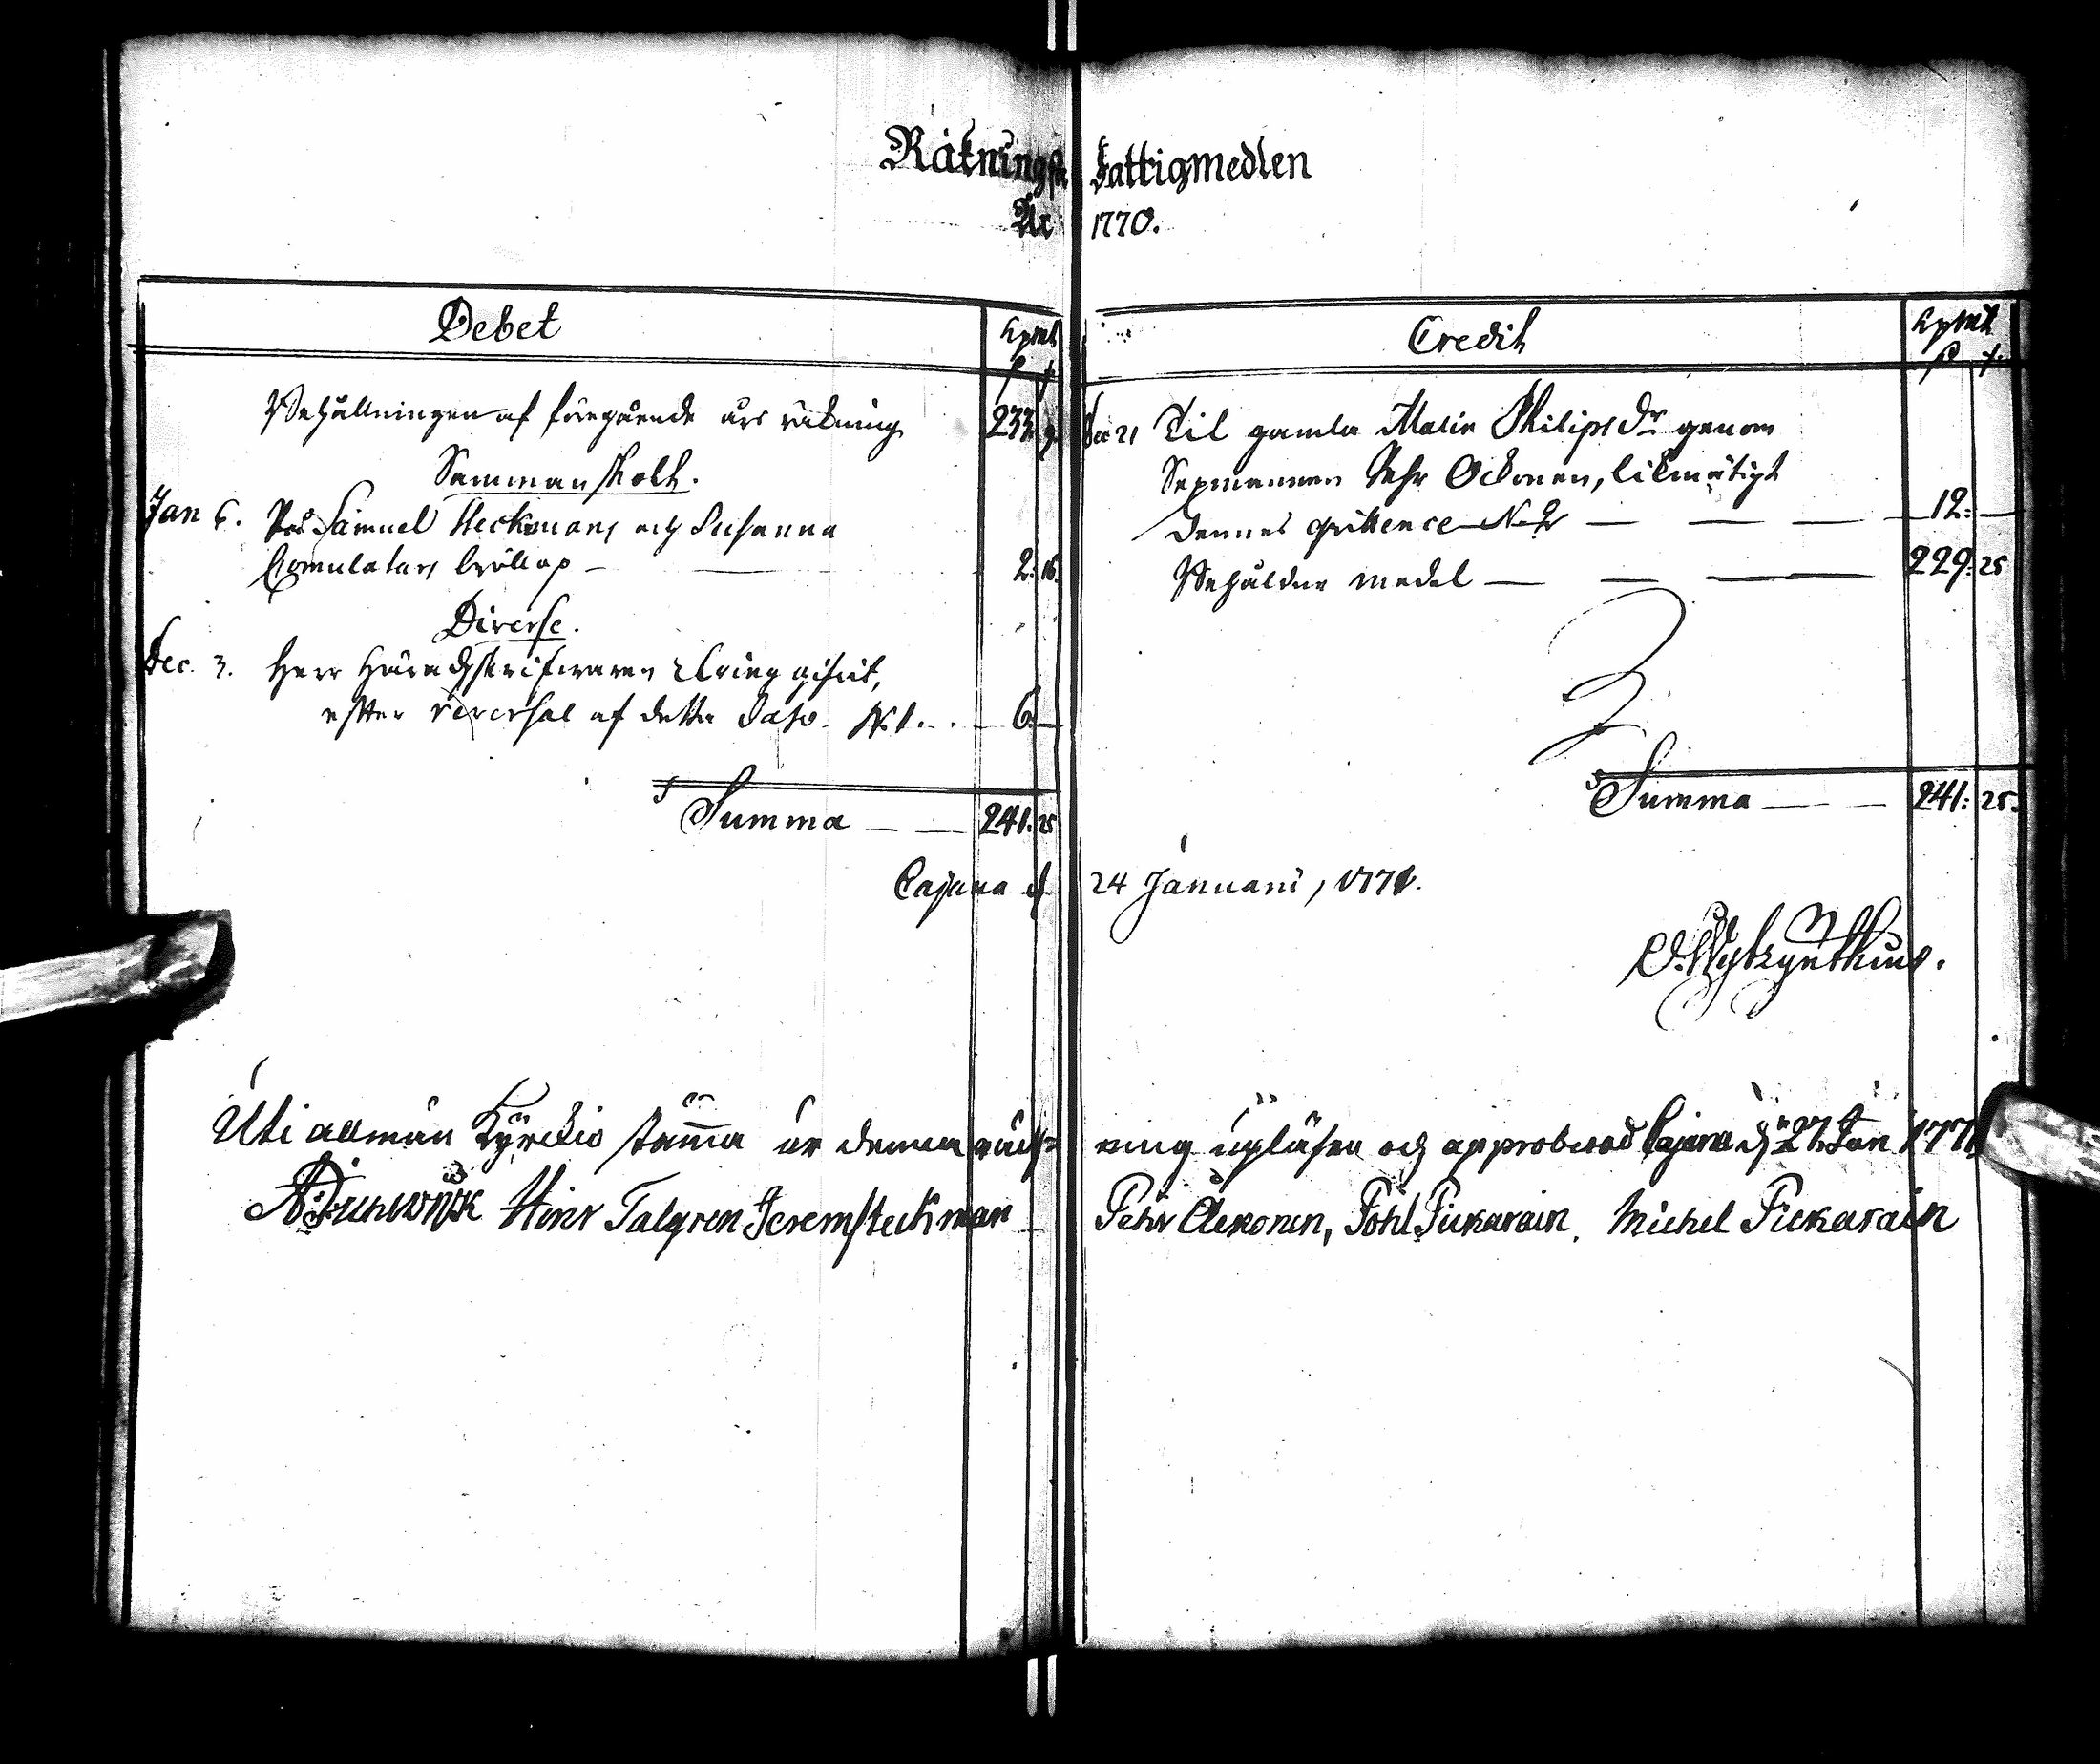 Räkning för Fattigmedlen
År 1770.
Debet
Kpmt
Behållningen af föregående års räkning 233. 9.
Sammanskott.
Jan 6. På Samuel Heckmans och Susanna
Comulatars bröllop — 2. 16.
Diverse.
Dec. 3. Herr Häradskrifvaren Uring gifvit,
efter reversal af detta dato N. 1. . . 6. —
Summa — — 241. 25
Credit
Kpmt
Dec 21 Til gamla Malin Philips Dr genom
Sexmannen Pehr Ockonen, likmätigt
dennes quittence N. 2 — — — 12: —
Behåldne medel — — — 229: 25
Summa — — 241: 25.
Cajana d. 24 Januarii, 1771.
Uti allmän Kyrckio stämma är denna räck=
ning upläsen och approberad Cajana d. 27. Jan 1771
Hinr Talgren Jerem Steckman
Pehr Ockonen, Påhl Pickarain, Michel Pickarain